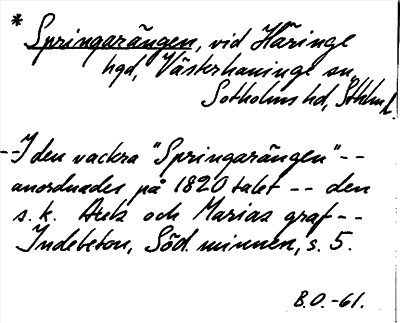 * Springarängen, vid Häringe
hgd, Västerhaninge sn,
Sotholms hd, Sthlm
- I den vackra "Springarängen" --
anordnades på 1820 talet -- den
s. k. och Marias graf --
Indebetou, Söd. minnen, s. 5.
B.O. -61.